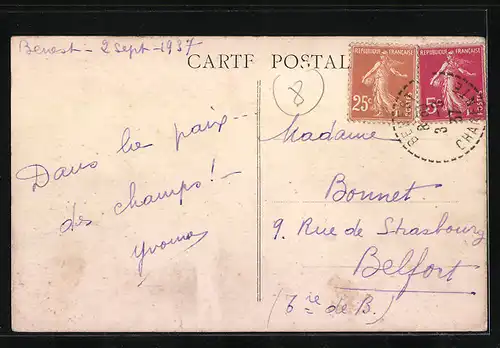 Benest - 2 sept - 1937
CARTE POSTAL
8
REPUBLIQUE FRANÇAISE
25c
REPUBLIQUE FRANÇAISE
5c
BENEST
CHA
Dans la paix ---
des champs! -
Yvonne
Madame
Bonnet
9. Rue de Strasbourg
Belfort
(Tire de B.)